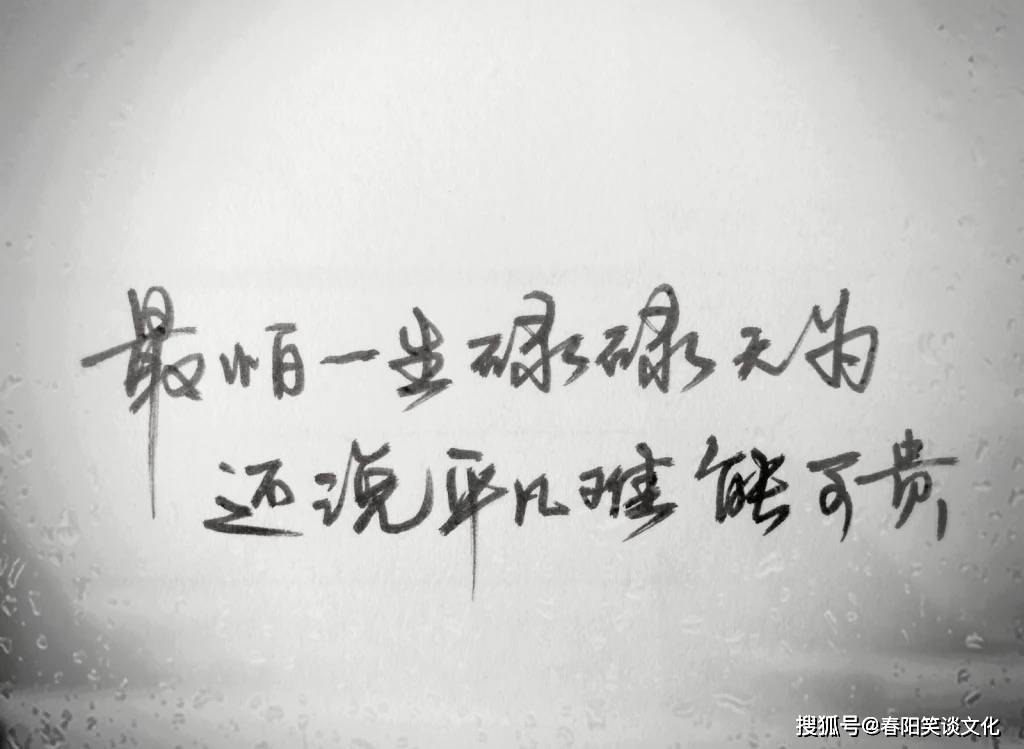 最怕一生碌碌无为
还说平凡难能可贵
搜狐号@春阳笑谈文化